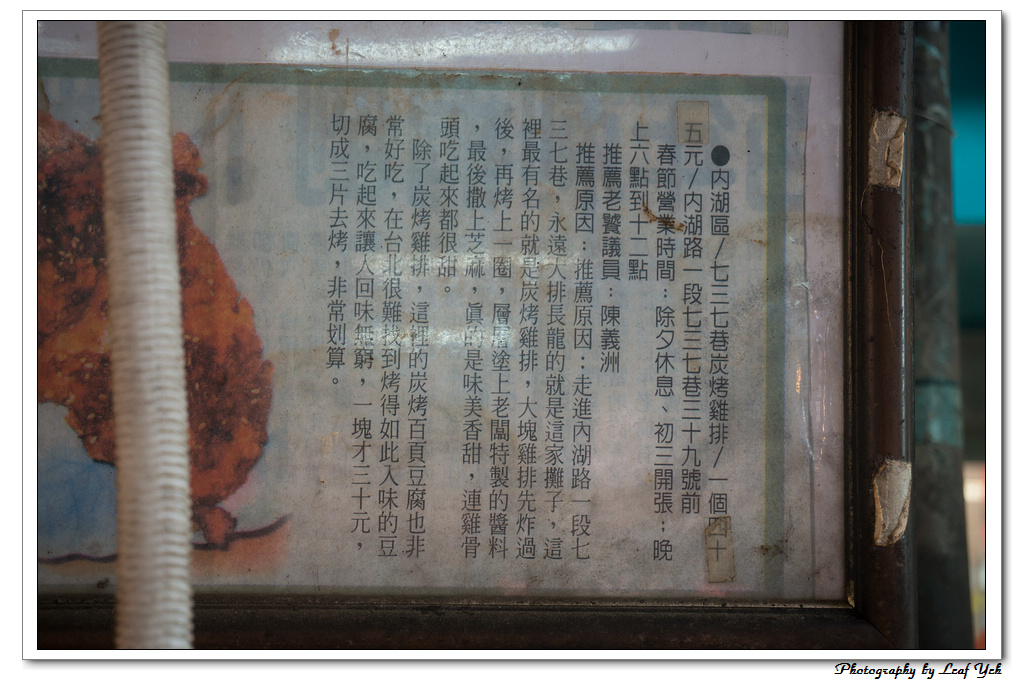 ●內湖區/七三七巷炭烤雞排/一個四十
五元/內湖路一段七三七巷三十九號前
春節營業時間：除夕休息、初三開張；晚
上六點到十二點
推薦老饕議員：陳義洲
推薦原因：推薦原因：走進內湖路一段七
三七巷，永遠大排長龍的就是這家攤子，這
裡最有名的就是炭烤雞排，大塊雞排先炸過
後，再烤上一圈，層層塗上老闆特製的醬料
，最後撒上芝麻，真的是味美香甜，連雞骨
頭吃起來都很甜。
除了炭烤雞排，這裡的炭烤百頁豆腐也非
常好吃，在台北很難找到烤得如此入味的豆
腐，吃起來讓人回味無窮，一塊才三十元，
切成三片去烤，非常划算。
Photography by Leaf Yeh